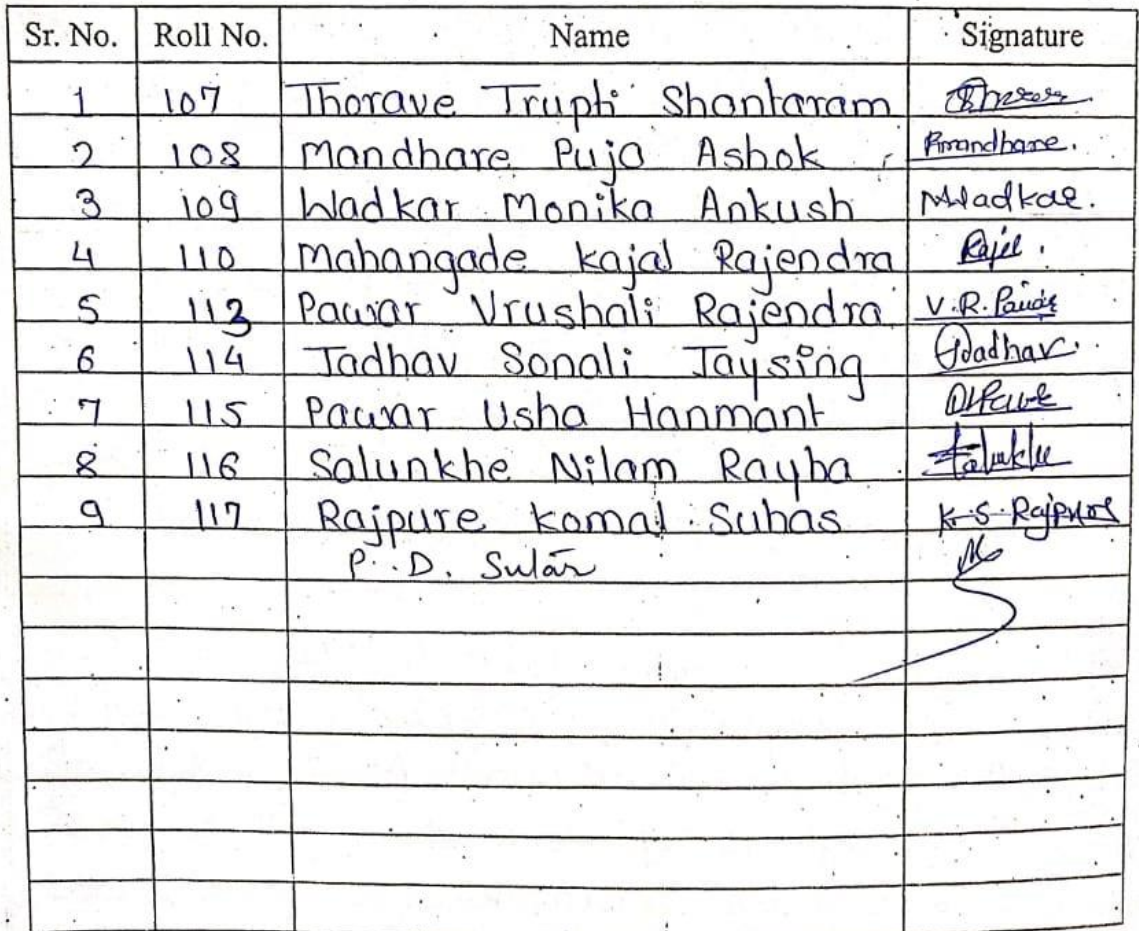 Sr. No. Roll No. Name Signature
1 107 Thorave Trupti Shantaram
2 108 Mandhare Puja Ashok Pmandhare.
3 109 Wadkar Monika Ankush MWadkar.
4 110 Mahangade Kajal Rajendra
5 113 Pawar Vrushali Rajendra V.R. Pawar
6 114 Jadhav Sonali Jaysing
7 115 Pawar Usha Hanmant
8 116 Salunkhe Nilam Rayba
9 117 Rajpure Komal Suhas K.S. Rajpure
P. D. Sutar